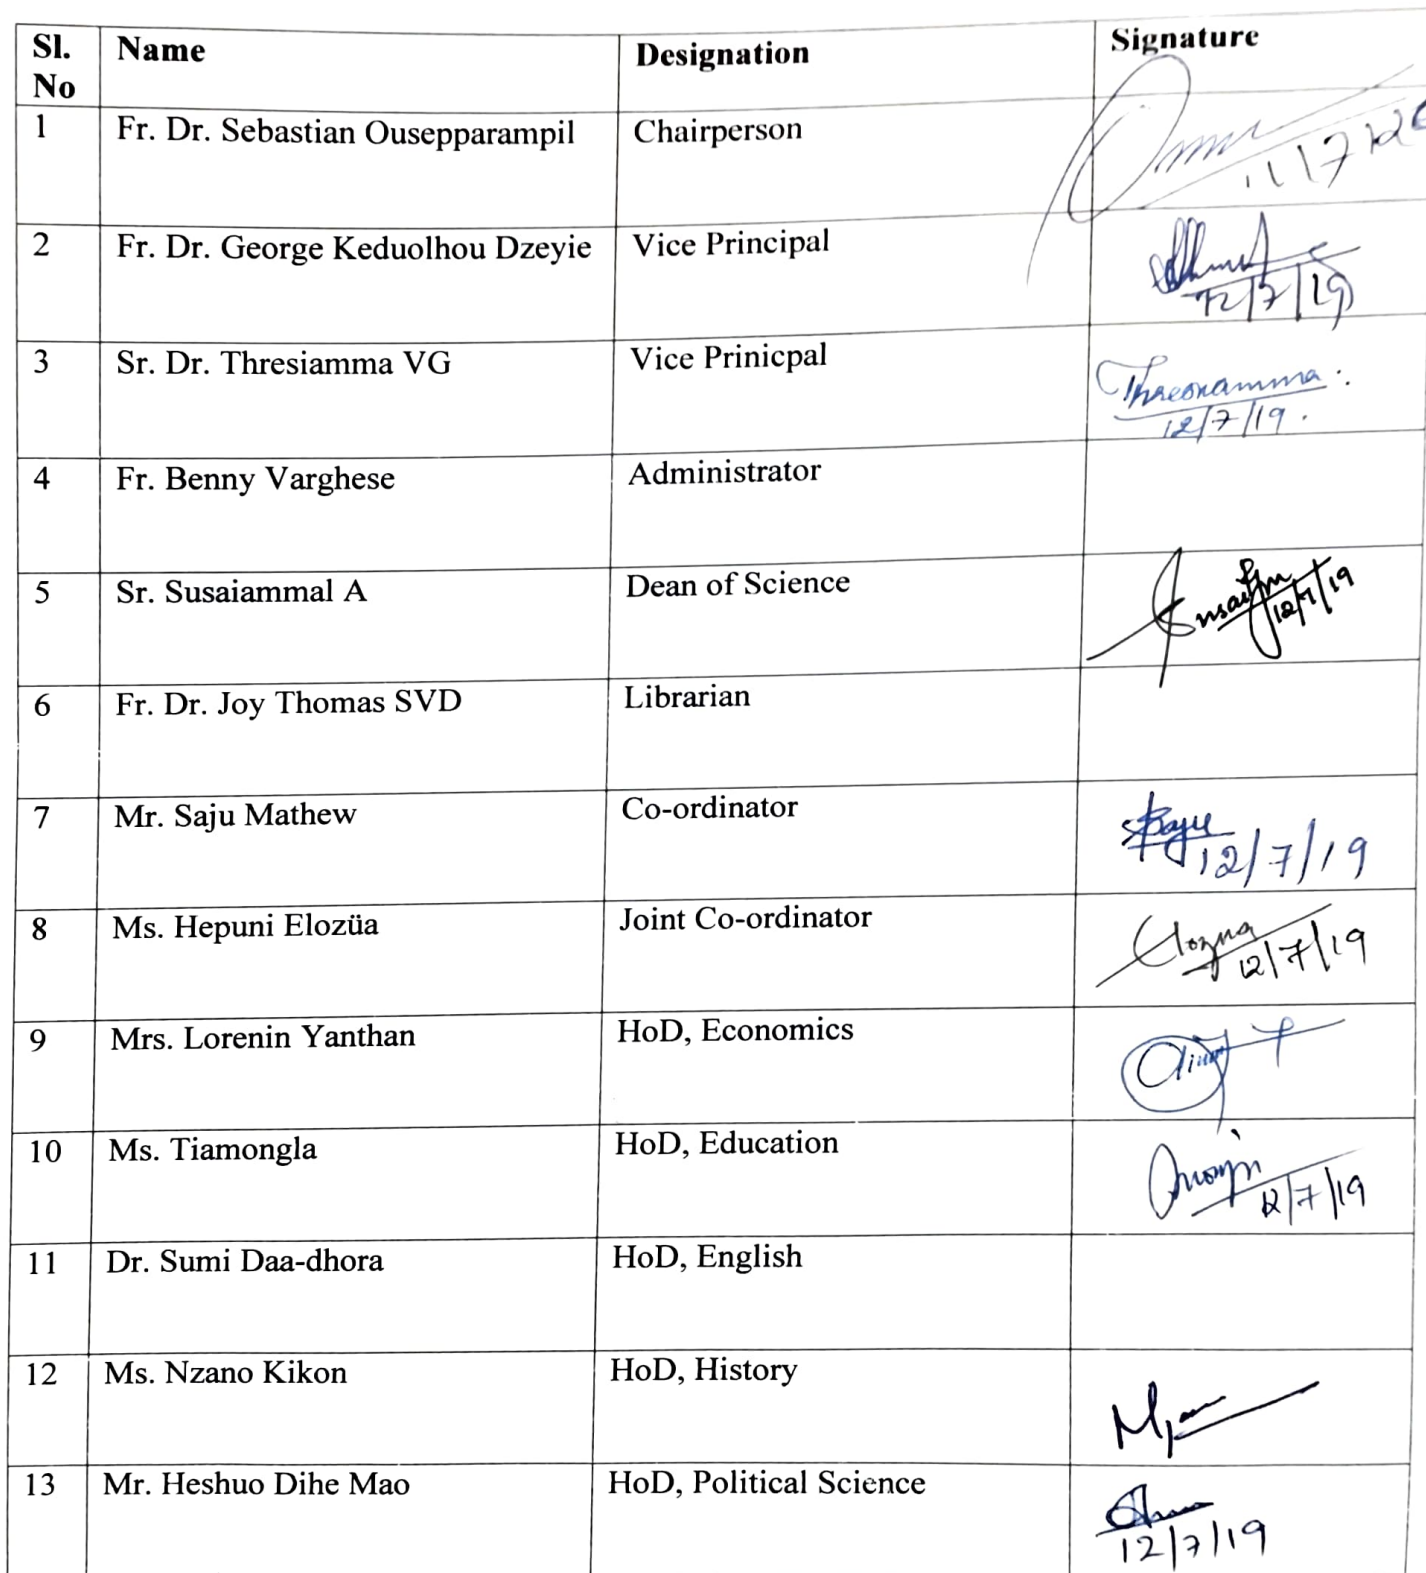 Sl. No Name Designation Signature
1 Fr. Dr. Sebastian Ousepparampil Chairperson
2 Fr. Dr. George Keduolhou Dzeyie Vice Principal 12/7/19
3 Sr. Dr. Thresiamma VG Vice Prinicpal Thresiamma. 12/7/19.
4 Fr. Benny Varghese Administrator
5 Sr. Susaiammal A Dean of Science 12/7/19
6 Fr. Dr. Joy Thomas SVD Librarian
7 Mr. Saju Mathew Co-ordinator Saju 12/7/19
8 Ms. Hepuni Elozüa Joint Co-ordinator Elozua 12/7/19
9 Mrs. Lorenin Yanthan HoD, Economics
10 Ms. Tiamongla HoD, Education 12/7/19
11 Dr. Sumi Daa-dhora HoD, English
12 Ms. Nzano Kikon HoD, History
13 Mr. Heshuo Dihe Mao HoD, Political Science 12/7/19